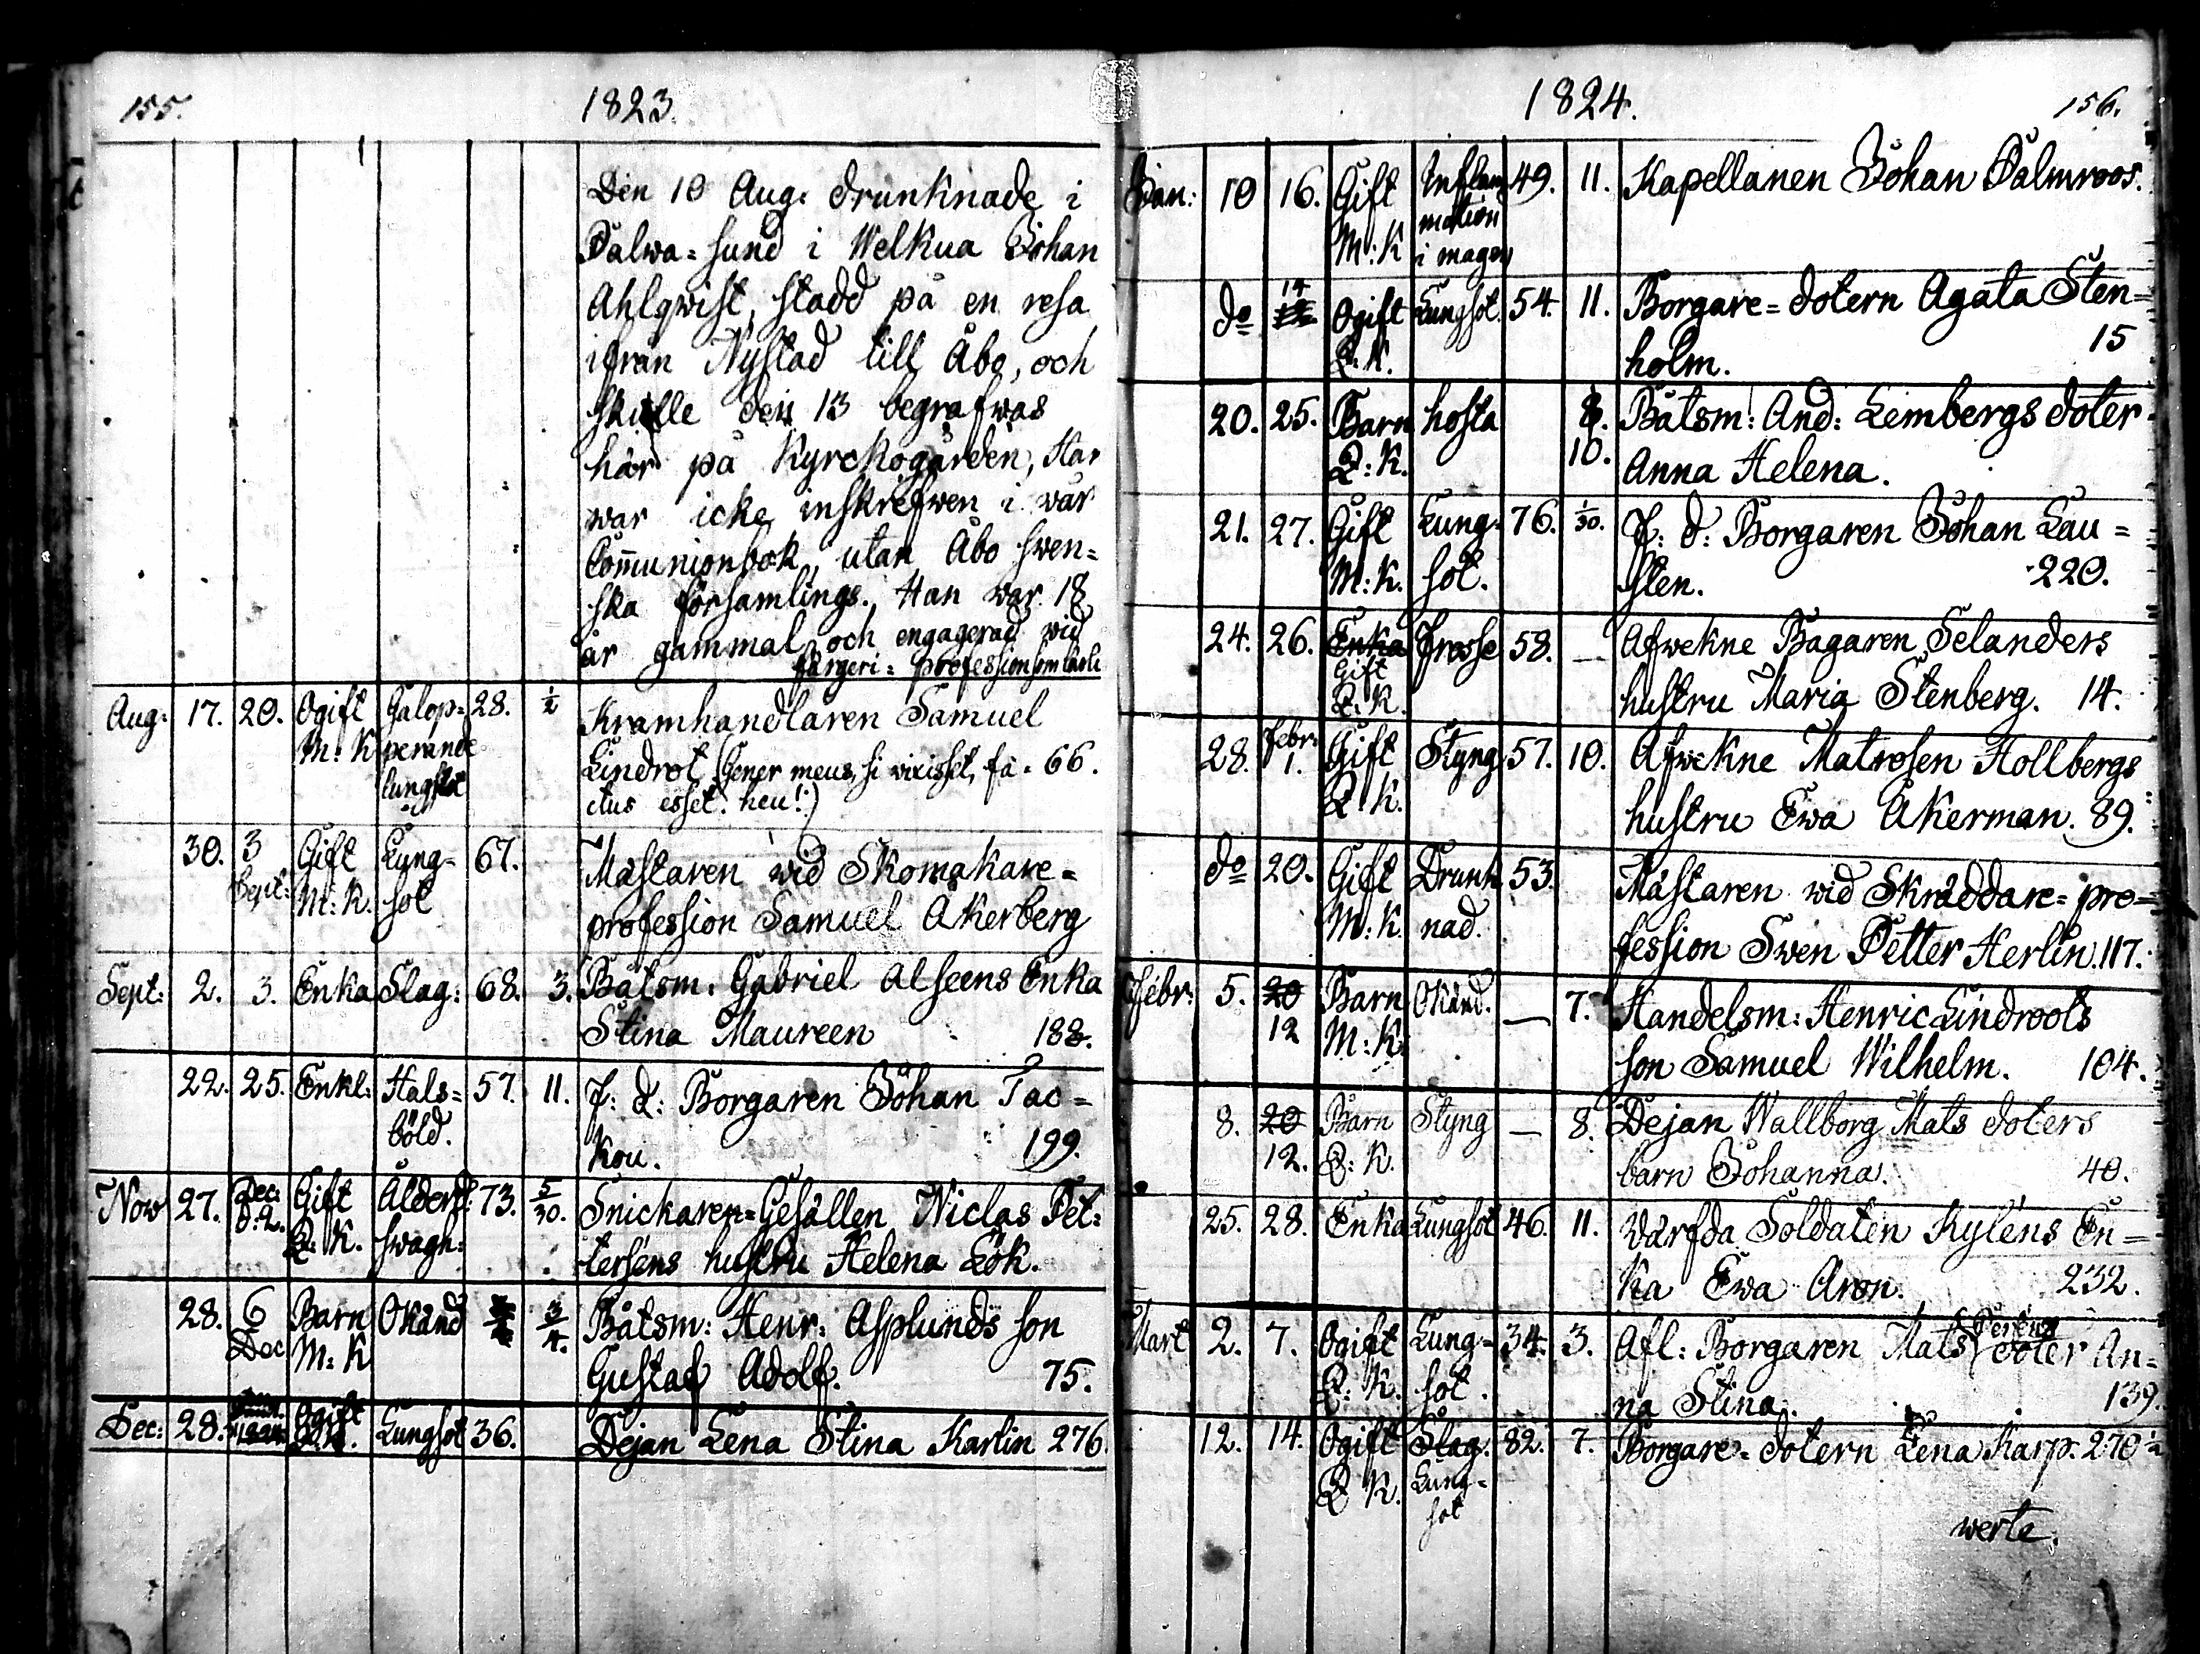 155.
1823.
Den 10 Aug. drunknade i
Palwa=sund i Welkua Johan
Ahlqwist, stadd på en resa
ifrån Nystad till Åbo, och
skulle den 13 begrafwas
här på Kyrckogården, Han
war icke inskrefwen i wår
Communionbok, utan Åbo swen=
ska församlings. Han war 18
år gammal och engagerad wid
färgeri=profession som
Aug: 17. 20. Ogift Galop= 28. ½ Kramhandlaren Samuel
M:K perande Lindrot (Gener meus, si vixisset, fa- 66.
lungsot ctus esset. heu!)
30. 3 Gift Lung- 67. Mästaren wid Skomakare=
Sept: M:K. sot profession Samuel Åkerberg
Sept: 2. 3. Enka Slag: 68. 3. Båtsm: Gabriel Alseens Enka
Stina Maureen 188.
22. 25. Enkl: Hals= 57. 11. F: d: Borgaren Johan Tac=
böld. kou. 199.
Now 27. Dec: Gift Ålderd: 73. 5/30. Snickaren=Gesällen Niclas Pet=
d:2. Q:K. swagh: terséns hustru Helena Lök.
28. 6 Barn Okänd 3/4. Båtsm: Henr: Asplunds son
Dec M:K Gustaf Adolf. 75.
Dec: 28. Ogift Lungsot 36. Dejan Lena Stina Karlin 276.
Q:K.
1824.
156.
Jan: 10 16. Gift Inflam 49. 11. Kapellanen Johan Palmroos.
M:K mation
i magen
do 14 Ogift Lungsot. 54. 11. Borgare=dotern Agata Sten=
Q:K. holm. 15
20. 25. Barn hosta 8. Båtsm: And: Lembergs doter
Q:K. 10. Anna Helena.
21. 27. Gift Lung- 76. 1/30. F: d: Borgaren Johan Lau=
M:K. sot. sten. 220.
24. 26. Enka Frosse 58. — Afwekne Bagaren Selanders
Gift
Q:K. hustru Maria Stenberg. 14.
28. Febr: Gift Styng 57. 10. Afwekne Matrosen Hollbergs
1. Q:K. hustru Ewa Åkerman. 89.
do 20. Gift Drunk 53. Mästaren wid Skräddare=pro=
M:K. nad. fession Swen Petter Herlin. 117.
Febr: 5. 20 Barn Okänd. — 7. Handelsm: Henric Lindroots
12 M:K. son Samuel Wilhelm. 104.
8. 20 Barn Styng — 8. Dejan Wallborg Mats doters
12. Q:K. barn Johanna. 40.
25. 28. Enka Lungsot 46. 11. Varfda Soldaten Kyléns En=
ka Ewa Aron. 232.
Mart 2. 7. Ogift Lung- 34. 3. Afl: Borgaren Mats doter An=
Q:K. sot. na Stina. 139.
12. 14. Ogift Slag. 82. 7. Borgare=dotern Lena Karp. 270½
Q K. Lung-
sot
werte.